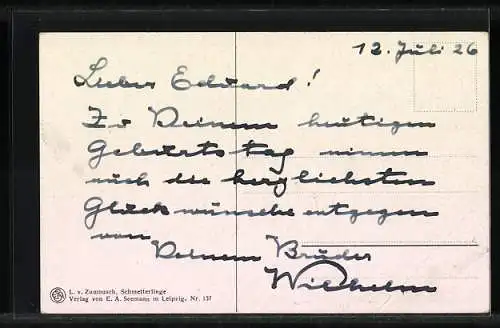 12. Juli 26
Lieber Eduard!
Zu Deinem heutigen
Geburtstag nimm
auch die herzlichsten
Glückwünsche entgegen
von
Deinem Bruder
Wilhelm
L. v. Zumbusch, Schmetterlinge
Verlag von E. A. Seemann in Leipzig. Nr. 137